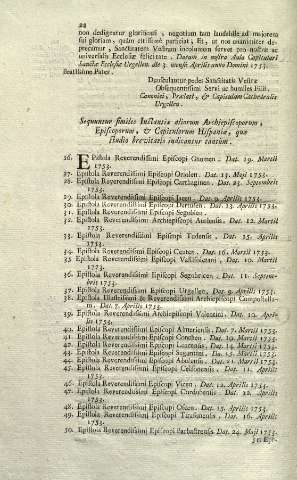 22
non dedignetur glorificari, negotium tam laudabile ad majorem
sui gloriam, quàm citissimè perficiat; Et, ut nos unanimiter de-
precamur, Sanctitatem Vestram incolumem servet pro nostra ac
universalis Ecclesiæ felicitate. Datum in nostra Aula Capitulari
Sanctæ Ecclesiæ Urgellen. die 3. mensis Aprilis anno Domini 1753.
Beatissime Pater.
Deosculantur pedes Sanctitatis Vestræ
Obsequentissimi Servi ac humiles Filii.
Canonici, Prælati, & Capitulum Cathedralis
Urgellen.
Sequuntur similes Instantiæ aliorum Archiepiscoporum,
Episcoporum, & Capitulorum Hispaniæ, quæ
studio brevitatis indicantur tantum.
26. EPistola Reverendissimi Episcopi Gaurien. Dat. 19. Martii
1753.
27. Epistola Reverendissimi Episcopi Oriolen. Dat. 13. Maji 1753.
28. Epistola Reverendissimi Episcopi Carthaginen. Dat. 23. Septembris
1753.
29. Epistola Reverendissimi Episcopi Jaen. Dat. 9. Aprilis 1753.
30. Epistola Reverendissimi Episcopi Dertusen. Dat. 13. Aprilis 1753.
31. Epistola Reverendissimi Episcopi Segobien.
32. Epistola Reverendissimi Archiepiscopi Auriensis. Dat. 12. Martii
1753.
33. Epistola Reverendissimi Episcopi Tudensis. Dat. 15. Aprilis
1753.
34. Epistola Reverendissimi Episcopi Ceuten. Dat. 16. Martii 1753.
35. Epistola Reverendissimi Episcopi Vallisoletani. Dat. 10. Martii
1753.
36. Epistola Reverendissimi Episcopi Segobricen. Dat. 11. Septem-
bris 1753.
37. Epistola Reverendissimi Episcopi Urgellen. Dat. 9. Aprilis 1753.
38. Epistola Illustrissimi & Reverendissimi Archiepiscopi Compostella-
ni. Dat. 7. Aprilis 1753.
39. Epistola Reverendissimi Archiepiscopi Valentini. Dat. 10. Apri-
lis 1753.
40. Epistola Reverendissimi Episcopi Almeriensis. Dat. 7. Martii 1753.
41. Epistola Reverendissimi Episcopi Conchen. Dat. 10. Martii 1753.
42. Epistola Reverendissimi Episcopi Lucensis. Dat. 14. Martii 1753.
43. Epistola Reverendissimi Episcopi Saguntini. Dat. 15. Martii 1753.
44. Epistola Reverendissimi Episcopi Abulensis. Dat. 21. Martii 1753.
45. Epistola Reverendissimi Episcopi Celsonensis. Dat. 11. Aprilis
1753.
46. Epistola Reverendissimi Episcopi Vicen. Dat. 12. Aprilis 1753.
47. Epistola Reverendissimi Episcopi Cordubensis. Dat. 12. Aprilis
1753.
48. Epistola Reverendissimi Episcopi Oscen. Dat. 15. Aprilis 1753.
49. Epistola Reverendissimi Episcopi Tirasonensis. Dat. 16. Aprilis
1753.
50. Epistola Reverendissimi Episcopi Barbastrensis. Dat. 24. Maji 1753.